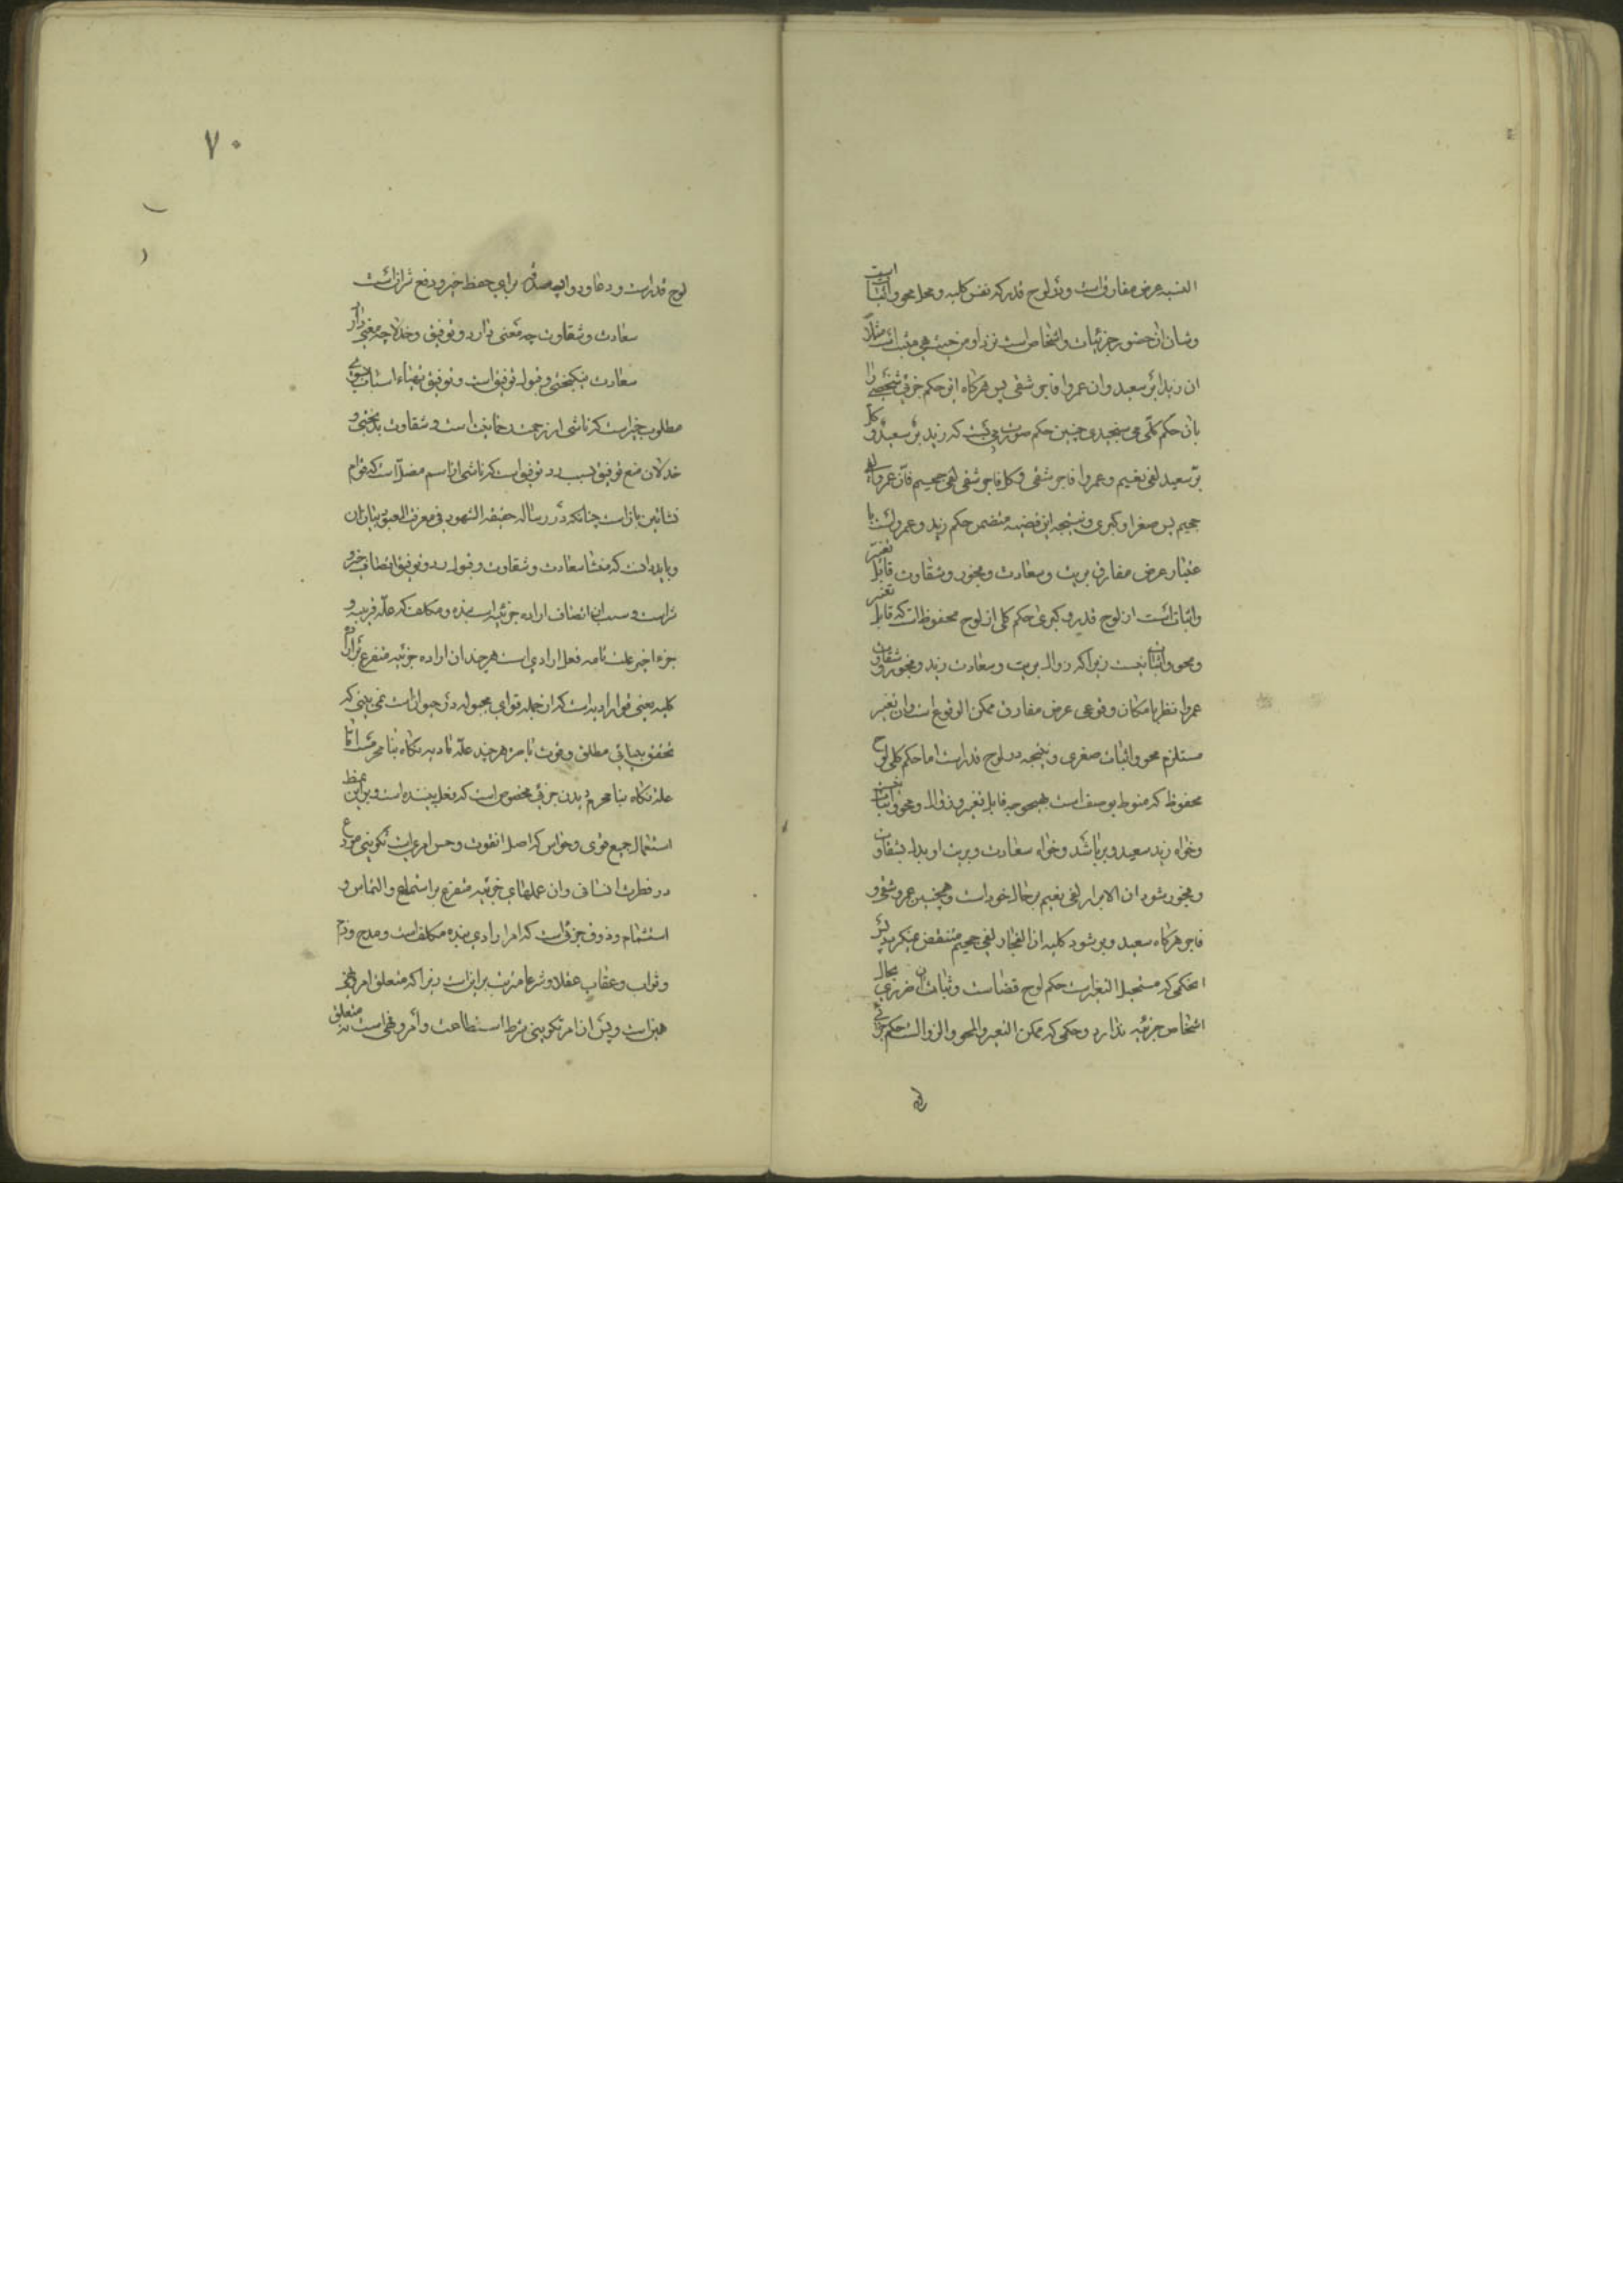 النسبه عرض مفارق است ودر لوح قدر که نفس کلیه ومحل محو واثبات است
وشان ان حضور جزئیات واشخاص است نزد او من حیث هی مثبت است مثلا
ان زیدا بر سعید وان عمروا فاجر شقی پس هرکاه این حکم جزئی شخصی را
بان حکم کلی می سنجیدی چنین حکم صورت می بست که زید بر سعید وکل
بر سعید لفی نعیم وعمروا فاجر شقی وکل فاجر شقی لفی جحیم فان عمروا لفی
جحیم پس صغرا وکبری ونتیجه این قضیه متضمن حکم زید وعمرو است با
عتبار عرض مفارق بریت وسعادت وفجور وشقاوت قابل تغیر
واثبات است از لوح قدر وکبری حکم کلی از لوح محفوظ است که قابل تغیر
ومحو واثبات نیست زیرا که زوال بریت وسعادت زید وفجور وشقاوت
عمروا نظر بامکان وقوعی عرض مفارق ممکن الوقوع است وان تغیر
مستلزم محو واثبات صغری ونتیجه در لوح قدر است اما حکم کلی لوح
محفوظ که منوط بوصف است بهیچوجه قابل تغیر وزوال ومحو واثبات نیست
وخواه زید سعید وبر باشد وخواه سعادت وبریت او بدل بشقاوت
وفجور شود ان الابرار لفی نعیم بر حال خود است وهمچنین عمرو شقی و
فاجر هرکاه سعید وبر شود کلیه ان الفجار لفی جحیم منتقض نمیکردد پس
احکمی که مستحیل التغیر است حکم لوح قضاست وثبات ان ضرری بحال
اشخاص جزئیه ندارد وحکمی که ممکن التغیر والمحو والزوال است حکم جزئی
لوح قدر است ودعا ودوا وصدقه برای حفظ خیر ودفع شر ازانست
سعادت وشقاوت چه معنی دارد وتوفیق وخذلان چه معنی دارد
سعادت نیکبختی وقبول توفیق است وتوفیق تهیاء اسباب بسوی
مطلوب خیر است که ناشی از رحمت رحمانیت است وشقاوت بدبختی و
خذلان منع توفیق بسبب رد توفیق است که ناشی از اسم مضل است که قوام
نشاتین باز است چنانکه در رساله حقیقه الشهود فی معرفة المعبود بیان ان
وباید دانست که منشا سعادت وشقاوت وقبول ورد توفیق اتصاف خیر و
شر است وسبب ان اتصاف اراده جزئیه است بنده ومکلف که علة قریبه و
جزء اخیر علت تامه فعل ارادی است هر چند ان اراده جزئیه متفرع بر اراده
کلیه یعنی قوه ارادیه است که از جمله قوای مجبوله در حیوان است نمی بینی که
تحقق بینائی مطلق وقوت باصره هرچند علة مادیه نکاه بنا محرم است اما
علة نکاه بنا محرم دیدن جزئی مخصوص است که فعل بیننده است وبر این نمط
استعمال جمیع قوی وحواس که اصل ان قوت وحس امریست تکوینی مودع
در فطرت انسانی وان عملهای جزئیه متفرع بر استماع والتماس و
استشمام وذوق جزئی است که امر ارادی بنده مکلف است ومدح وذم
وثواب وعقاب عقلا وشرعا مترتب بر این است زیرا که متعلق امر ونهی
همین است وپیش ازان امر تکوینی شرط استطاعت وامر ونهی است نه متعلق
٧٠